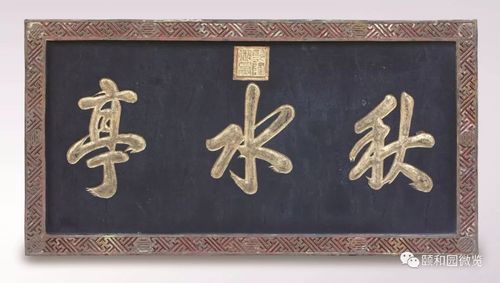 秋水亭
颐和园微览